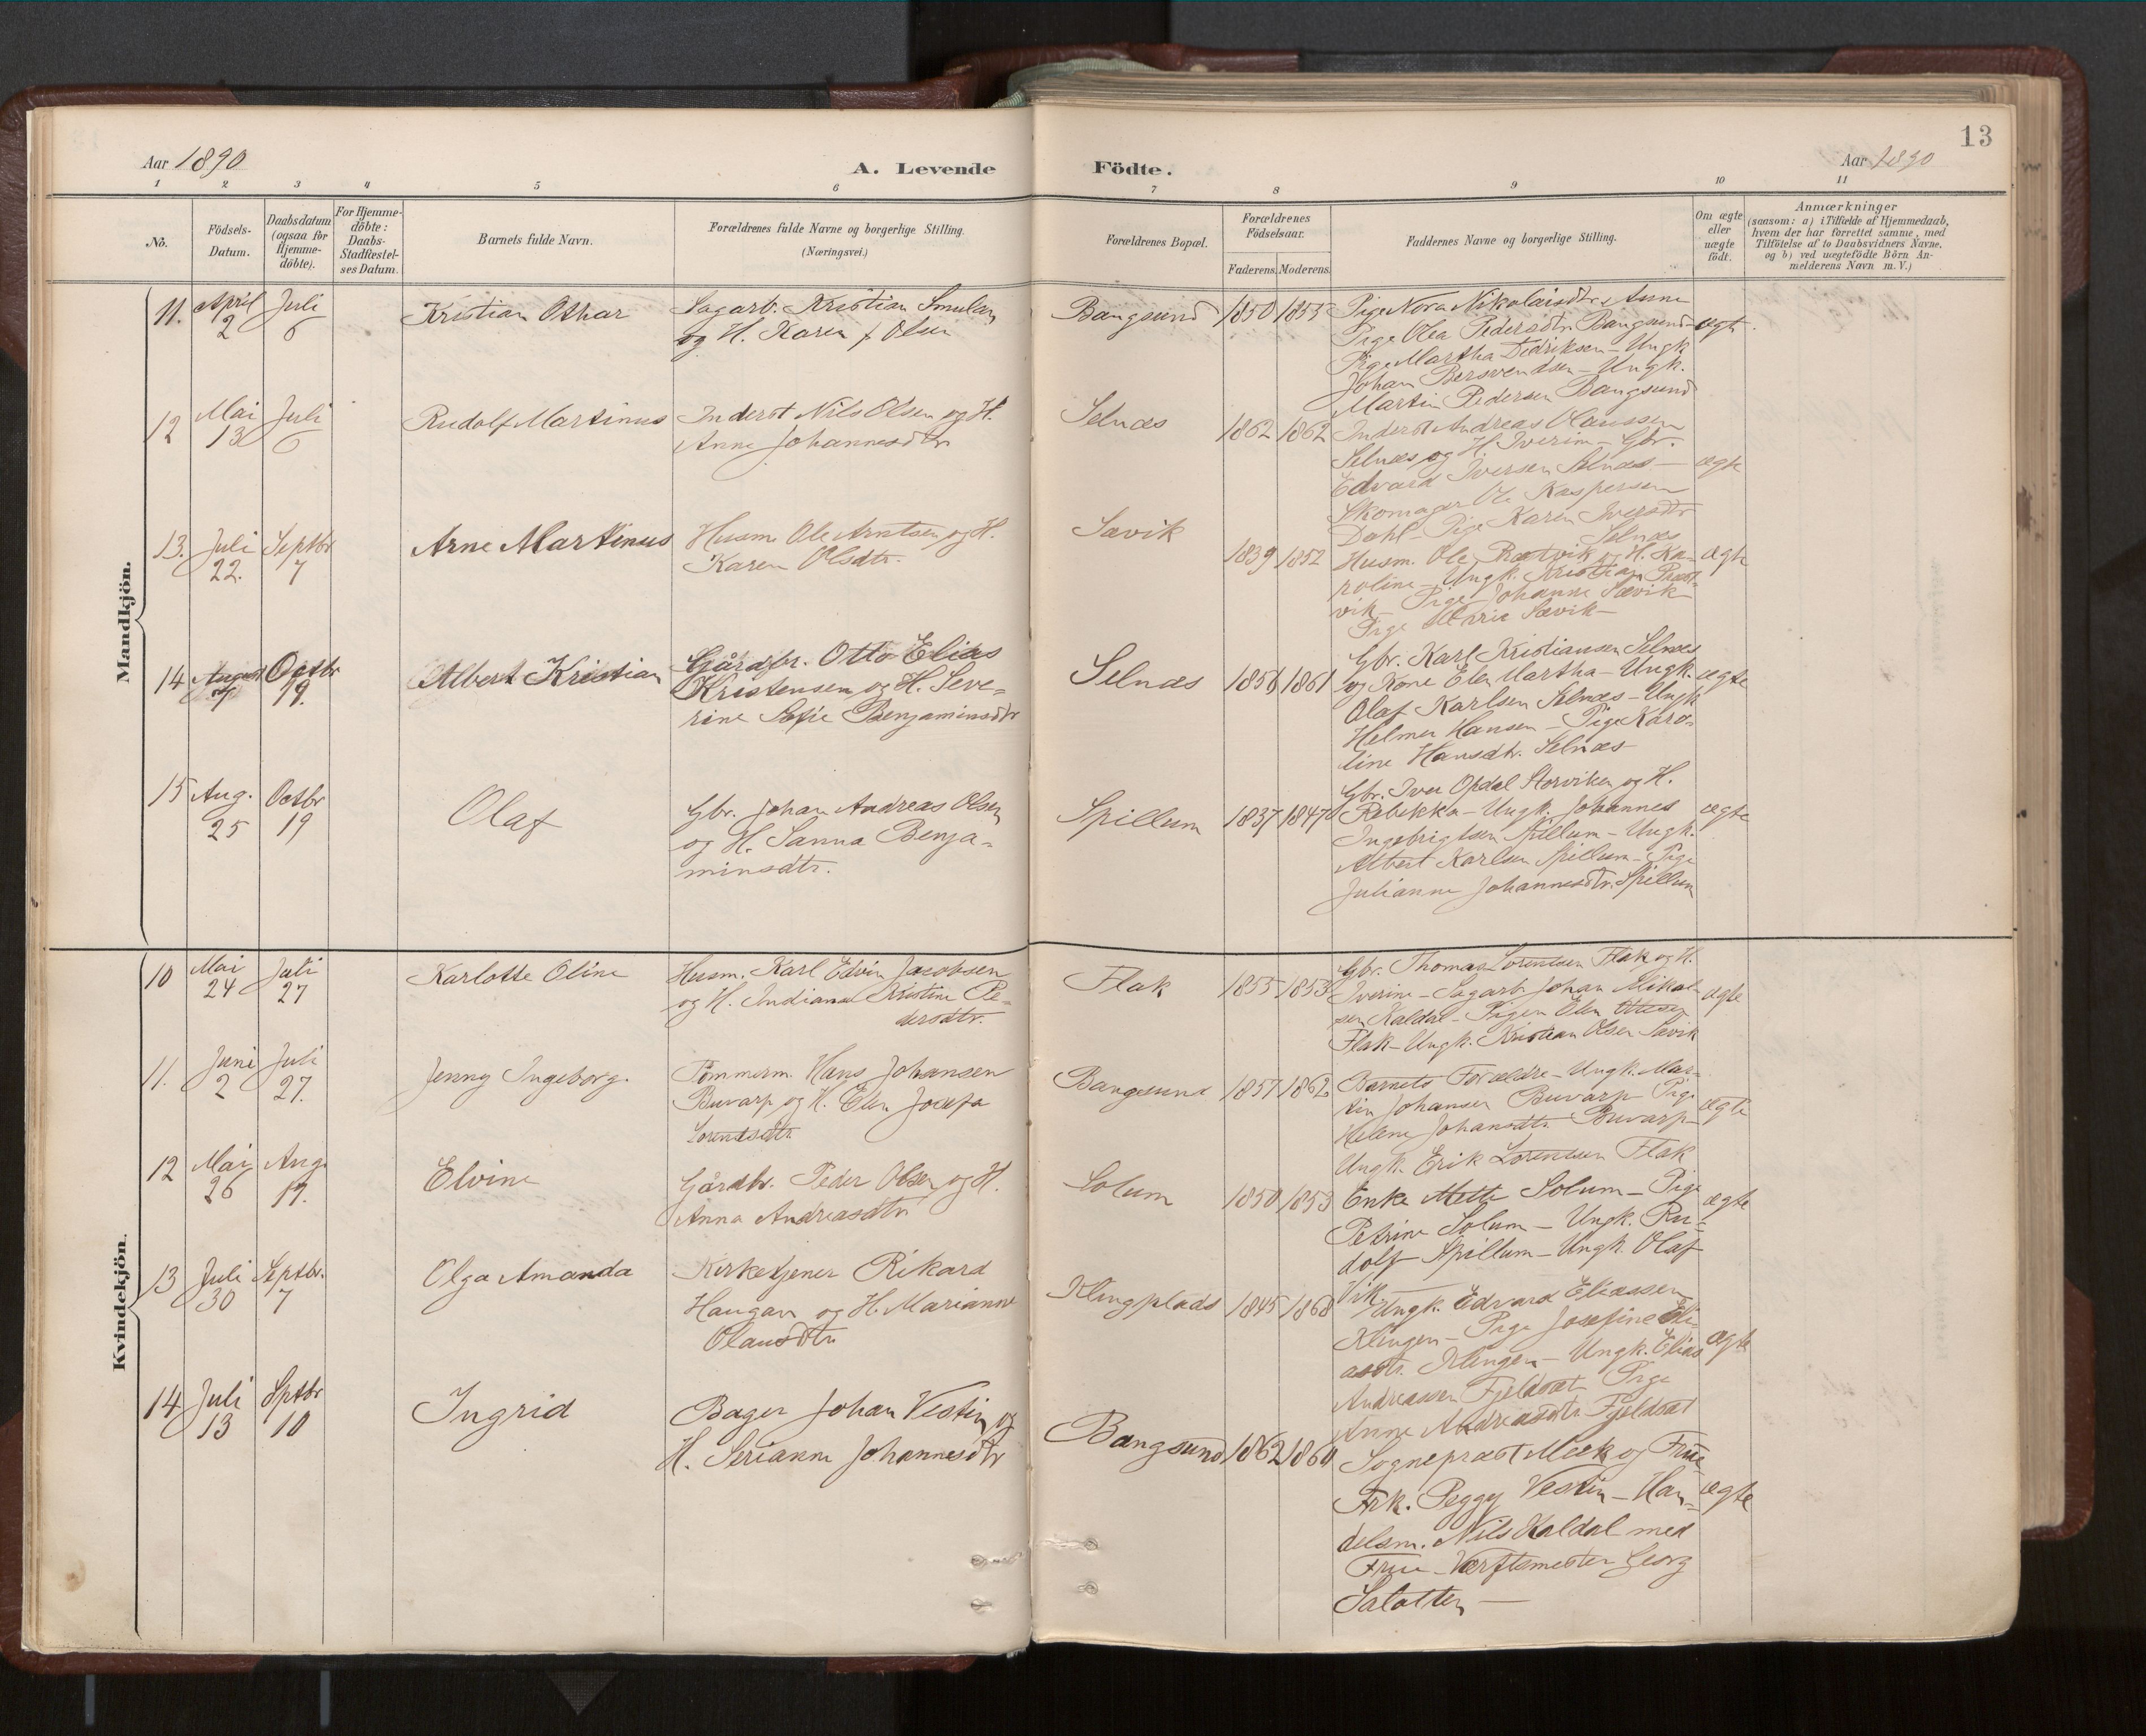 13
Aar 1890
A. Levende
Födte.
Aar 1890
1 2 3 4 5 6 7 8 9 10 11
No.
Födsels-
Datum.
Daabsdatum
(ogsaa for
Hjemme-
döbte).
For Hjemme-
döbte:
Daabs-
Stadfæstel-
ses Datum.
Barnets fulde Navn.
Forældrenes fulde Navne og borgerlige Stilling.
(Næringsvei.)
Forældrenes Bopæl.
Forældrenes
Födselsaar.
Faderens. Moderens.
Faddernes Navne og borgerlige Stilling.
Om ægte
eller
uægte
födt.
Anmærkninger
(saasom: a) i Tilfælde af Hjemmedaab,
hvem der har forrettet samme, med
Tilföielse af to Daabsvidners Navne,
og b) ved uægtefödte Börn An-
melderens Navn m. V.)
Mandkjön.
11. April 2 Juli 6
Kristian Othar
Sagarb. Kristian
og H. Karen f. Olsen
Bangsund 1850 1855
Pige Nora Nikolaisdtr. Anne
Pige Olea Pedersdtr. Bangsund-
Pige Martha Didriksen - Ungk.
Johan Bersvendsen - Ungk.
Martin Pedersen Bangsund
ægte
12 Mai 13 Juli 6
Rudolf Martinus
Inderst Nils Olsen og H.
Anne Johannesdtr
Selnæs 1862 1862
Inderst Andreas Olaussen
Selnæs og H. Iverine - Gbr.
Edvard Iversen Selnæs -
Skomager Ole Kaspersen
Dahl - Pige Karen Iversdtr
Selnæs
ægte
13. Juli 22. Septbr 7
Arne Martinus
Husm. Ole Arntsen og H.
Karen Olsdtr.
Sævik 1839 1852
Husm. Ole Præstvik og H. Ka-
roline - Ungk. Kristian Præst-
vik - Pige Johanne Sævik
Pige Marie Sævik -
ægte
14 August Octbr 19.
Albert Kristian
Gårdbr. Otto Elias
Kristensen og H. Seve-
rine Sofie Benjaminsdtr
Selnæs 1856 1861
Gbr. Karl Kristiansen Selnæs
og Kone Elen Martha - Ungk.
Olaf Karlsen Selnæs - Ungk
Helmer Hansen - Pige Karo-
line Hansdtr. Selnæs
ægte
15 Aug. 25 Octbr 19
Olaf
Gbr. Johan Andreas Olsen
og H. Sanna Benja-
minsdtr.
Spillum 1837 1847
Gbr. Iver Opdal Storviken og H.
Rebekka - Ungk. Johannes
Ingebrigtsen Spillum - Ungk.
Albert Karlsen Spillum - Pige
Julianne Johannesdtr. Spillum
ægte
Kvindekjön.
10 Mai 24 Juli 27
Karlotte Oline
Husm. Karl Edvin Jacobsen
og H. Indiana Kristine Pe-
dersdtr.
Flak 1855 1853
Gbr. Thomas Lorentsen Flak og H.
Iverine - Sagarb. Johan Mikal-
sen Kaldal - Pigen Elen
Flak - Ungk. Kristian Olsen Sævik
ægte
11. Juni 2 Juli 27.
Jenny Ingeborg.
Tømmerm. Hans Johansen
Buvarp og H. Elen Josefa
Lorentsdtr.
Bangsund 1857 1862
Barnets Forældre - Ungk. Mar-
tin Johansen Buvarp Pige
Helene Johansdtr. Buvarp -
Ungk. Erik Lorentsen Flak
ægte
12 Mai 26 Aug. 17.
Elvine
Gårdbr. Peder Olsen og H.
Anna Andreasdtr
Solum 1850 1853
Enke Mette Solum - Pige
Petrine Solum - Ungk. Ru-
dolf Spillum - Ungk. Olaf
Vik.
ægte
13 Juli 30 Septbr. 7
Olga Amanda
Kirketjener Rikard
Haugan og H. Marianne
Olausdtr
Klingplads 1845 1868
Ungk. Edvard Eliassen
Klingen - Pige Josefine Eli-
asdtr. Klingen - Ungk. Elias
Andreassen Fjeldsæt Pige
Anne Andreasdtr. Fjeldsæt
ægte
14 Juli 13 Sptbr 10
Ingrid
Bager Johan Vestin og
H. Serianne Johannesdtr
Bangsund 1862 1860
Sognepræst Meek og Frue
Frk. Peggy Vestin - Han-
delsm. Nils Kaldal med
Frue - Værftsmester Georg
Salatten -
ægte